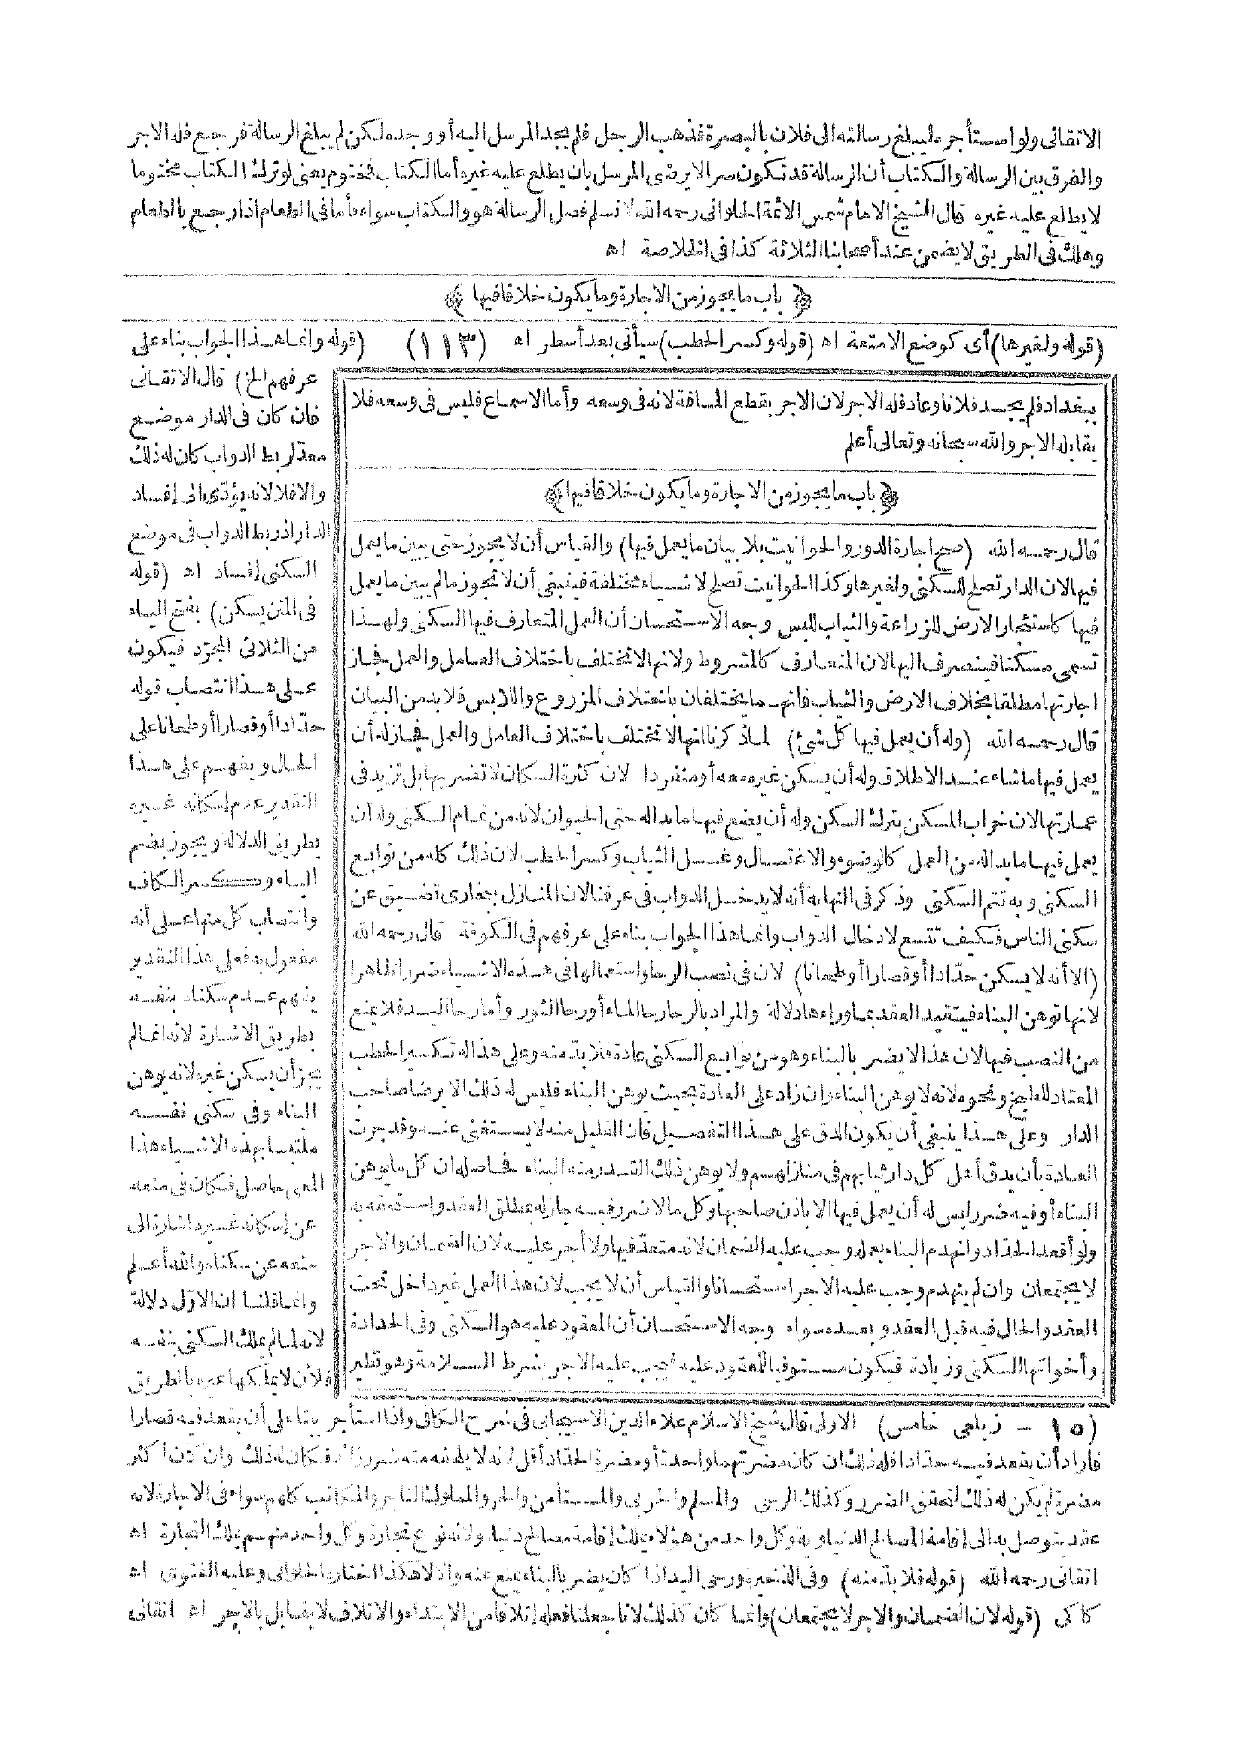 الاتقانى ولو استأجره ليبلغ رسالته الى فلان بالبصرة فذهب الرجل فلم يجد المرسل اليه أو وجده لكن لم يبلغ الرسالة فرجع فله الاجر
والفرق بين الرسالة والكتاب أن الرسالة قد تكون سرا لا يرضى المرسل بان يطلع عليه غيره أما الكتاب فمختوم يعنى لو ترك الكتاب مختوما
لا يطلع عليه غيره قال الشيخ الامام شمس الائمة الحلوانى رحمه الله لا نسلم فصل الرسالة هو والكتاب سواء فأما فى الطعام اذا رجع بالطعام
وهلك فى الطريق لا يضمن عند أصحابنا الثلاثة كذا فى الخلاصة اه
﴿باب ما يجوز من الاجارة وما يكون خلافا فيها﴾
(قوله ولغيرها) أى كوضع الامتعة اه (قوله وكسر الحطب) سيأتى بعد أسطر اه (١١٣) (قوله وانما هذا الجواب بناء على
عرفهم الخ) قال الاتقانى
فان كان فى الدار موضع
معد لربط الدواب كان له ذلك
والا فلا لانه يؤدى الى إفساد
الدار اذ ربط الدواب فى موضع
السكنى إفساد اه (قوله
فى المتن يسكن) بفتح الياء
من الثلاثى المجرد فيكون
على هذا انتصاب قوله
حدادا أو قصارا أو طحانا على
الحال ويفهم على هذا
التقدير عدم إسكانه غيره
بطريق الدلالة ويجوز بضم
الياء وكسر الكاف
وانتصاب كل منها على أنه
مفعول به فعلى هذا التقدير
يفهم عدم سكناه بنفسه
بطريق الاشارة لانه انما لم
يجز أن يسكن غيره لانه يوهن
البناء وفى سكنى نفسه
ملتبسا بهذه الاشياء هذا
المعنى حاصل فكان فى منعه
عن إسكانه غيره اشارة الى
منعه عن سكناه والله أعلم
وانما قلنا ان الاول دلالة
لانه لما لم يملك السكنى بنفسه
فلأن لا يملكها غيره بالطريق
ببغداد فلم يجد فلانا وعاد فله الاجر لان الاجر بقطع المسافة لانه فى وسعه وأما الاسماع فليس فى وسعه فلا
يقابله الاجر والله سبحانه وتعالى أعلم
﴿باب ما يجوز من الاجارة وما يكون خلافا فيها﴾
قال رحمه الله (صح اجارة الدور والحوانيت بلا بيان ما يعمل فيها) والقياس أن لا يجوز حتى يبين ما يعمل
فيها لان الدار تصلح للسكنى ولغيرها وكذا الحوانيت تصلح لاشياء مختلفة فينبغى أن لا تجوز ما لم يبين ما يعمل
فيها كاستئجار الارض للزراعة والثياب للبس وجه الاستحسان أن العمل المتعارف فيها السكنى ولهذا
تسمى مسكنا فينصرف اليها لان المتعارف كالمشروط ولانها لا تختلف باختلاف العامل والعمل فجاز
اجارتها مطلقا بخلاف الارض والثياب فانهما يختلفان باختلاف المزروع واللابس فلا بد من البيان
قال رحمه الله (وله أن يعمل فيها كل شئ) لما ذكرنا انها لا تختلف باختلاف العامل والعمل فجاز له أن
يعمل فيها ما شاء عند الاطلاق وله أن يسكن غيره معه أو منفردا لان كثرة السكان لا تضر بها بل تزيد فى
عمارتها لان خراب المسكن بترك السكن وله أن يضع فيها ما بدا له حتى الحيوان لانه من تمام السكنى وله ان
يعمل فيها ما بدا له من العمل كالوضوء والاغتسال وغسل الثياب وكسر الحطب لان ذلك كله من توابع
السكنى وبه تتم السكنى وذكر فى النهاية أنه لا يدخل الدواب فى عرفنا لان المنازل ببخارى تضيق عن
سكنى الناس فكيف تتسع لادخال الدواب وانما هذا الجواب بناء على عرفهم فى الكوفة قال رحمه الله
(الا أنه لا يسكن حدادا أو قصارا أو طحانا) لان فى نصب الرحا واستعمالها فى هذه الاشياء ضررا ظاهرا
لانها توهن البناء فيتقيد العقد بما وراءها دلالة والمراد بالرحا رحا الماء أو رحا الثور وأما رحا اليد فلا يمنع
من النصب فيها لان هذا لا يضر بالبناء وهو من توابع السكنى عادة فلا بد منه وعلى هذا له تكسير الحطب
المعتاد للطبخ ونحوه لانه لا يوهن البناء وان زاد على العادة بحيث يوهن البناء فليس له ذلك الا برضا صاحب
الدار وعلى هذا ينبغى أن يكون الدق على هذا التفصيل فان القليل منه لا يستغنى عنه وقد جرت
العادة بأن يدق أهل كل دار ثيابهم فى منازلهم ولا يوهن ذلك القدر منه البناء فحاصله ان كل ما يوهن
البناء أو فيه ضرر ليس له أن يعمل فيها الا باذن صاحبها وكل ما لا ضرر فيه جاز له بمطلق العقد واستحقه به
ولو أقعد الحداد وانهدم البناء بعمله وجب عليه الضمان لانه متعد فيها ولا أجر عليه لان الضمان والاجر
لا يجتمعان وان لم ينهدم وجب عليه الاجر استحسانا والقياس أن لا يجب لان هذا العمل غير داخل تحت
العقد والحال فيه قبل العقد وبعده سواء وجه الاستحسان أن المعقود عليه هو السكنى وفى الحدادة
وأخواتها السكنى وزيادة فيكون مستوفيا للمعقود عليه فيجب عليه الاجر بشرط السلامة وهو نظير
(١٥ - زيلعى خامس) الاولى قال شيخ الاسلام علاء الدين الاسبيجابى فى شرح الكافى واذا استأجر بيتا على أن يقعد فيه قصارا
فأراد أن يقعد فيه حدادا فله ذلك ان كان مضرتهما واحدة أو مضرة الحداد أقل لانه لا يلحقه منه ضرر زائد فكان له ذلك وان كان أكثر
مضرة لم يكن له ذلك لتحقق الضرر وكذلك الرحى والمسلم والحربى والمستأمن والحر والمملوك التاجر والمكاتب كلهم سواء فى الاجارة لانه
عقد يتوصل به الى إقامة المصالح الدنياوية وكل واحد من هؤلاء يملك إقامة مصالح دنياه ولانه نوع تجارة وكل واحد منهم يملك التجارة اه
اتقانى رحمه الله (قوله فلا بد منه) وفى الذخيرة ورحى اليد اذا كان يضر بالبناء يمنع عنه والا فلا هكذا اختاره الحلوانى وعليه الفتوى اه
كاكى (قوله لان الضمان والاجر لا يجتمعان) وانما كان كذلك لانا جعلنا فعله إتلافا من الابتداء والاتلاف لا يقابل بالاجر اه اتقانى